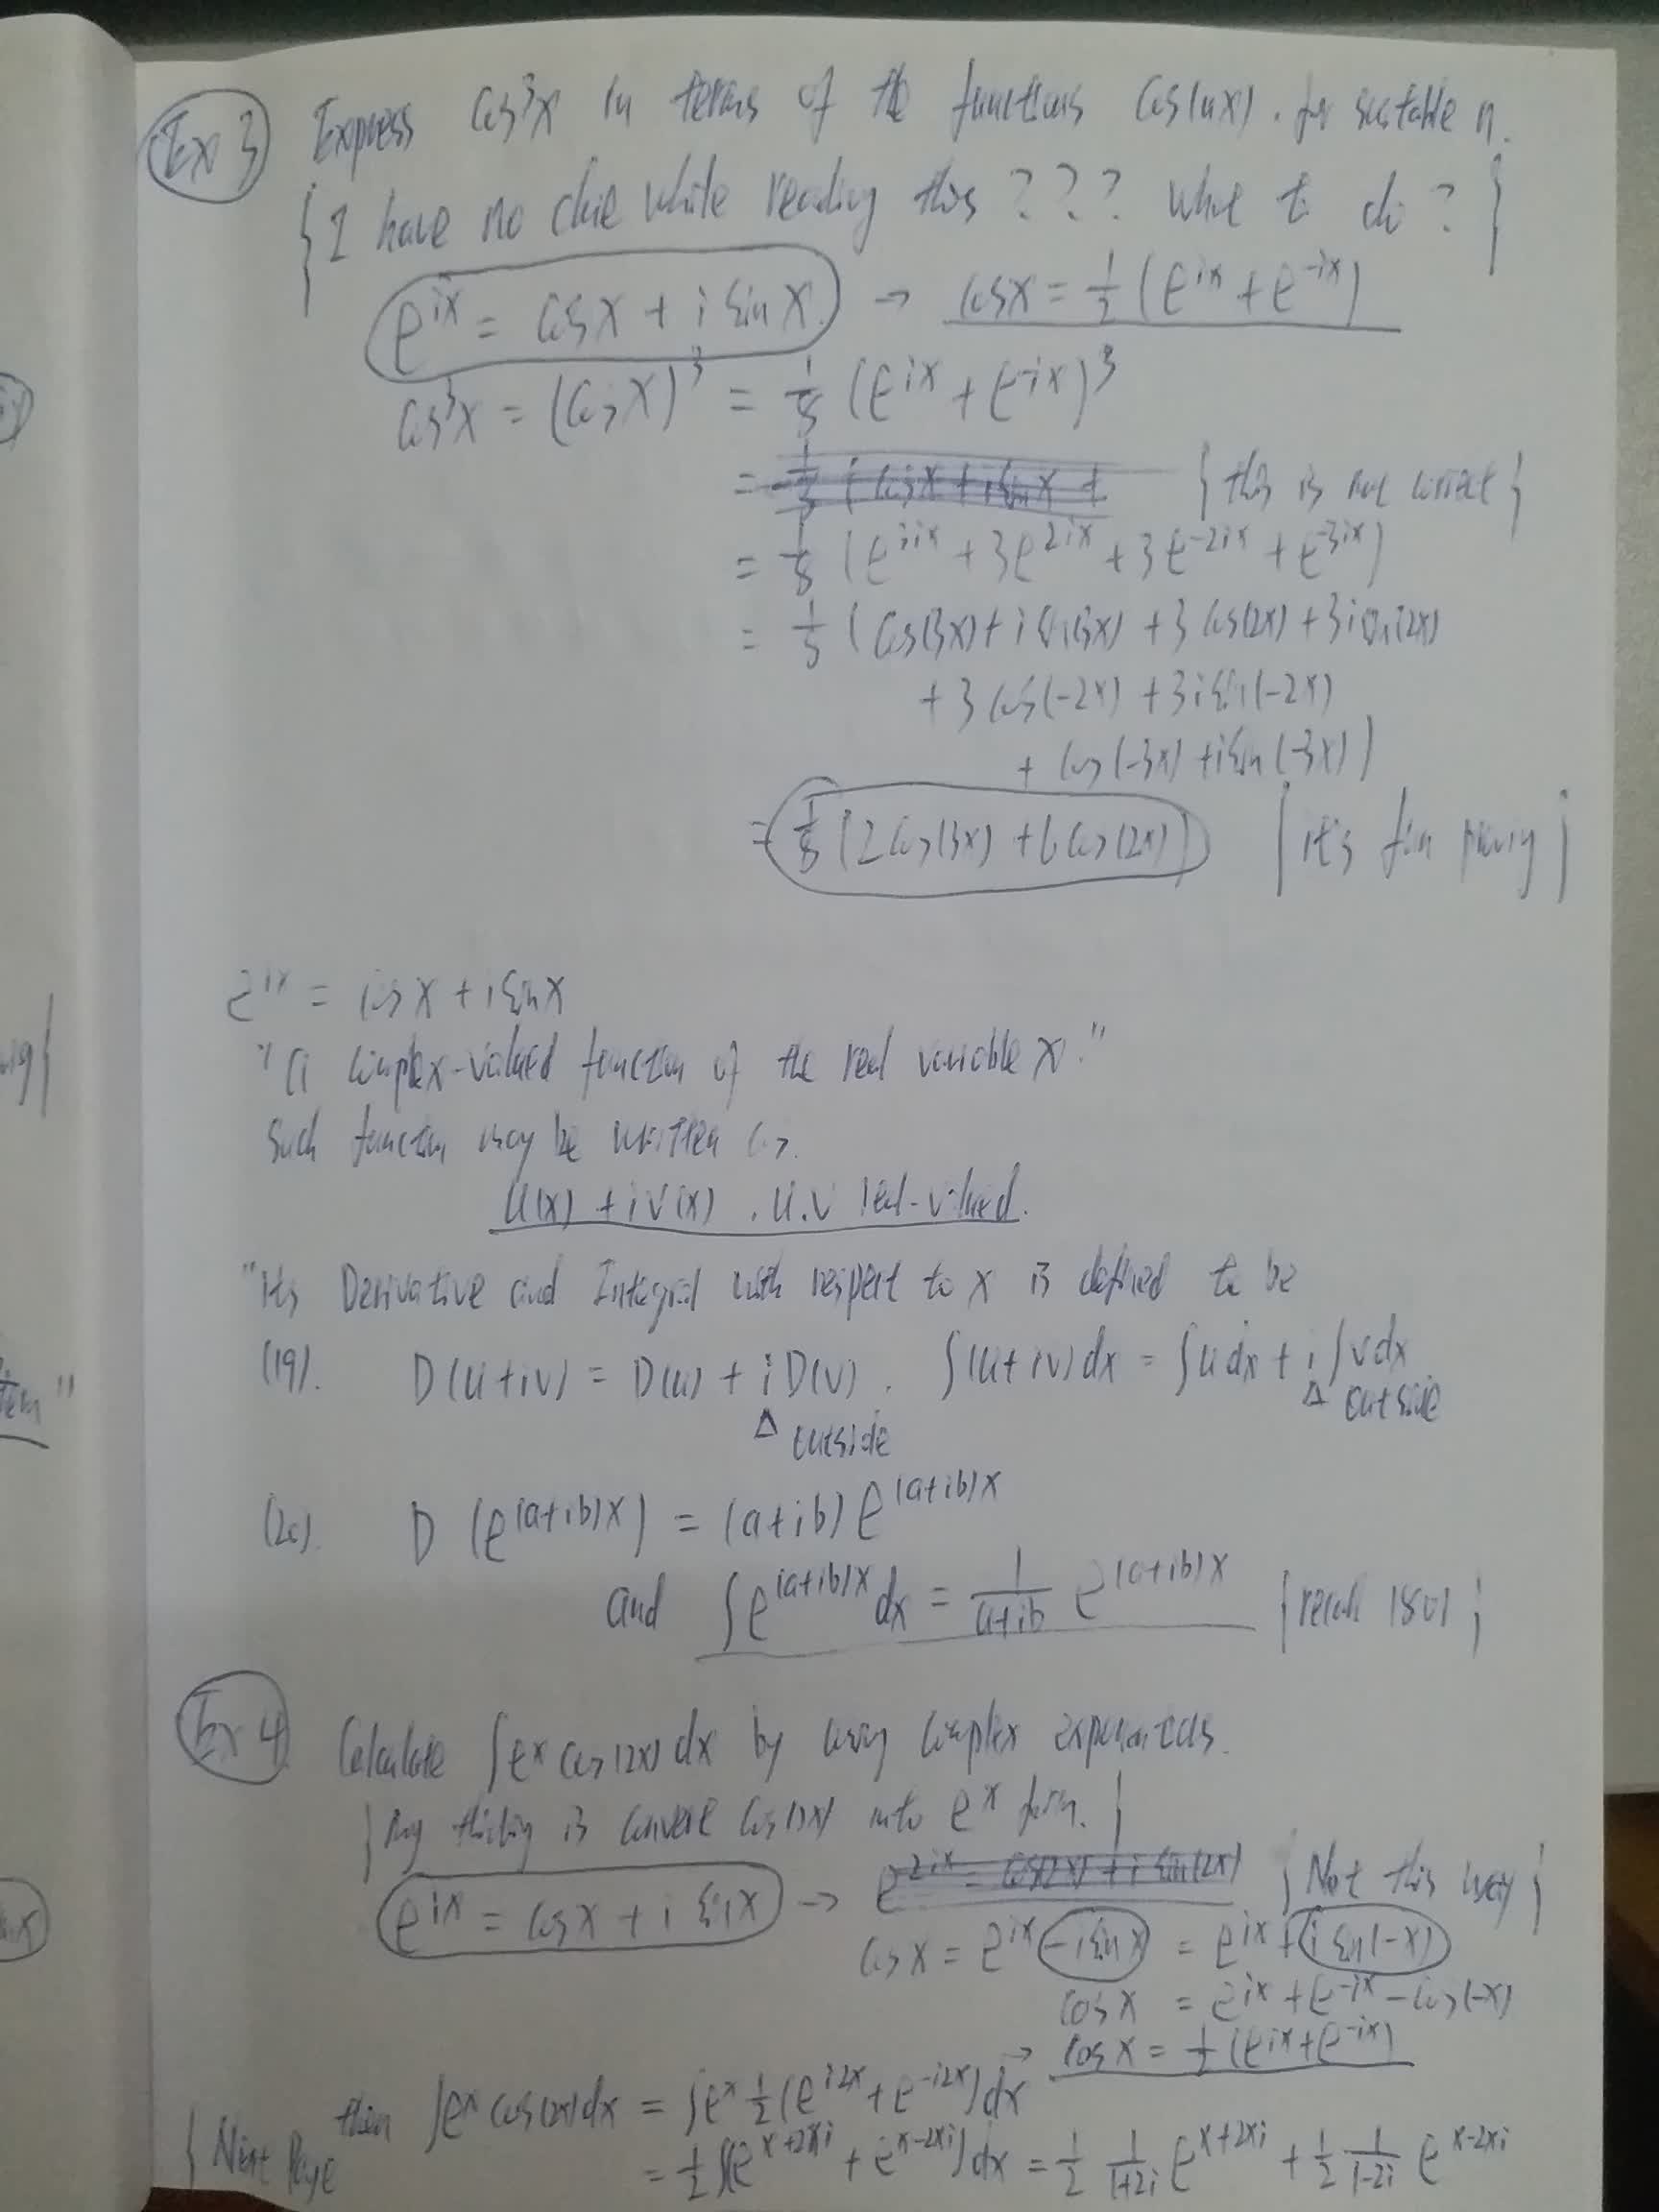 Ex 3 Express cos³x in terms of the functions cos(nx). for suitable n.
{ I have no clue while reading this ??? what to do ? }
e^{ix} = cosx + i sinx. → cosx = 1/2 (e^{ix} + e^{-ix})
cos³x = (cosx)³ = 1/8 (e^{ix} + e^{-ix})³
= 1/8 ( cosx + i sinx + { this is not correct }
= 1/8 (e^{3ix} + 3e^{2ix} + 3e^{-2ix} + e^{-3ix})
= 1/8 (cos(3x) + i sin(3x) + 3 cos(2x) + 3i sin(2x)
+ 3 cos(-2x) + 3i sin(-2x)
+ cos(-3x) + i sin(-3x))
= 1/8 (2 cos(3x) + 6 cos(2x)) { it's fun }
e^{ix} = cosx + i sinx
"a complex-valued function of the real variable x."
Such function may be written as
u(x) + iv(x) . u.v real-valued.
"Its Derivative and Integral with respect to x is defined to be
(19). D(u+iv) = D(u) + i D(v). ∫(u+iv)dx = ∫u dx + i ∫v dx
Δ outside Δ outside
(20). D (e^{(a+ib)x}) = (a+ib) e^{(a+ib)x}
and ∫e^{(a+ib)x} dx = 1/(a+ib) e^{(a+ib)x} { recall 1801 }
Ex 4 Calculate ∫e^x cos(2x) dx by using complex exponentials.
{ my thinking is convert cos(2x) into e^x form. }
e^{ix} = cosx + i sinx → e^{2ix} = cos(2x) + i sin(2x) { Not this way }
cosx = e^{ix} - i sinx = e^{ix} + i sin(-x)
cosx = e^{ix} + e^{-ix} - cos(-x)
→ cosx = 1/2 (e^{ix} + e^{-ix})
then ∫e^x cos(2x)dx = ∫e^x 1/2 (e^{i2x} + e^{-i2x}) dx
{ Next Page = 1/2 ∫(e^{x+2xi} + e^{x-2xi}) dx = 1/2 1/(1+2i) e^{x+2xi} + 1/2 1/(1-2i) e^{x-2xi}